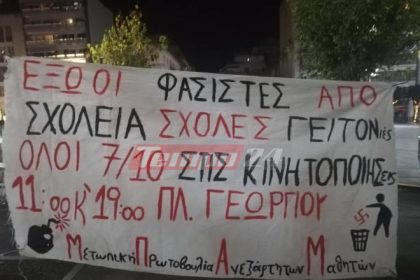 ΕΞΩ ΟΙ ΦΑΣΙΣΤΕΣ ΑΠΟ
ΣΧΟΛΕΙΑ ΣΧΟΛΕΣ ΓΕΙΤΟΝιές
ΟΛΟΙ 7/10 ΣΤΙΣ ΚΙΝΗΤΟΠΟΙΗΣεις
11:00 Κ' 19:00 ΠΛ. ΓΕΩΡΓΙΟΥ
Μετωπική Πρωτοβουλία Ανεξάρτητων Μαθητών